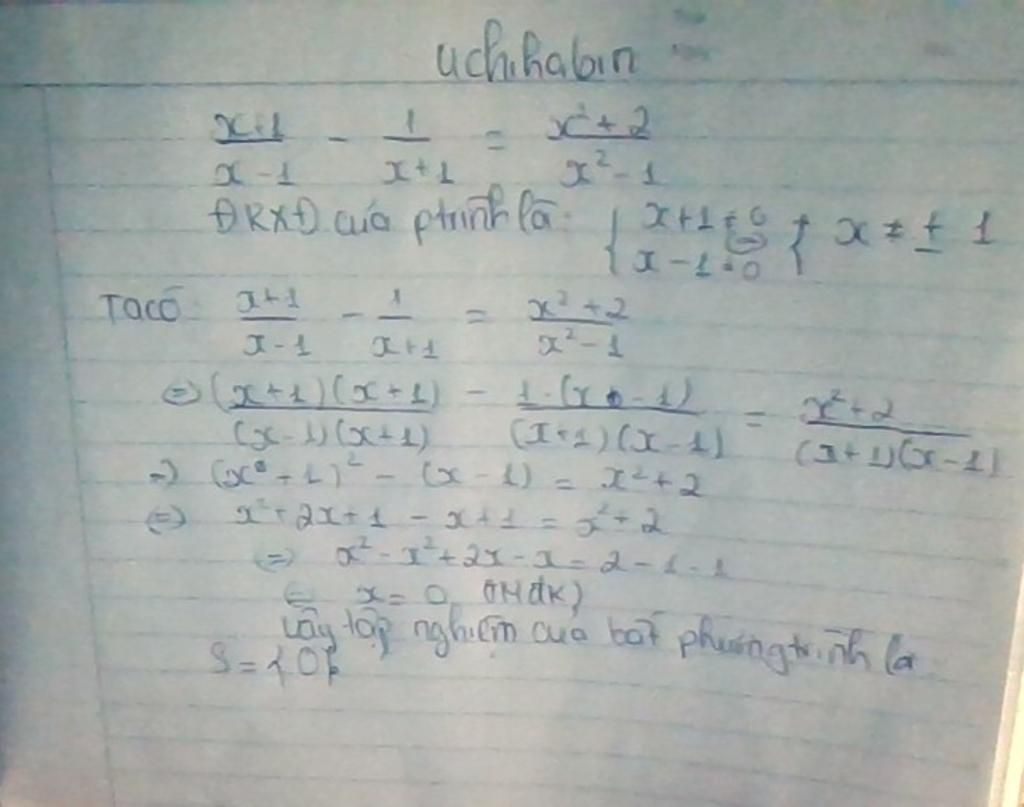 uchihabin
x+1/x-1 - 1/x+1 = x²+2/x²-1
ĐKXĐ của ptrình là: { x+1≠0 x-1≠0 ⇔ { x ≠ ± 1
Ta có: x+1/x-1 - 1/x+1 = x²+2/x²-1
⇔ (x+1)(x+1)/(x-1)(x+1) - 1.(x-1)/(x+1)(x-1) = x²+2/(x+1)(x-1)
⇒ (x+1)² - (x-1) = x²+2
⇔ x²+2x+1 - x+1 = x²+2
⇔ x²-x²+2x-x = 2-1-1
⇔ x = 0 (TMĐK)
Vậy tập nghiệm của bất phương trình là
S = {0}